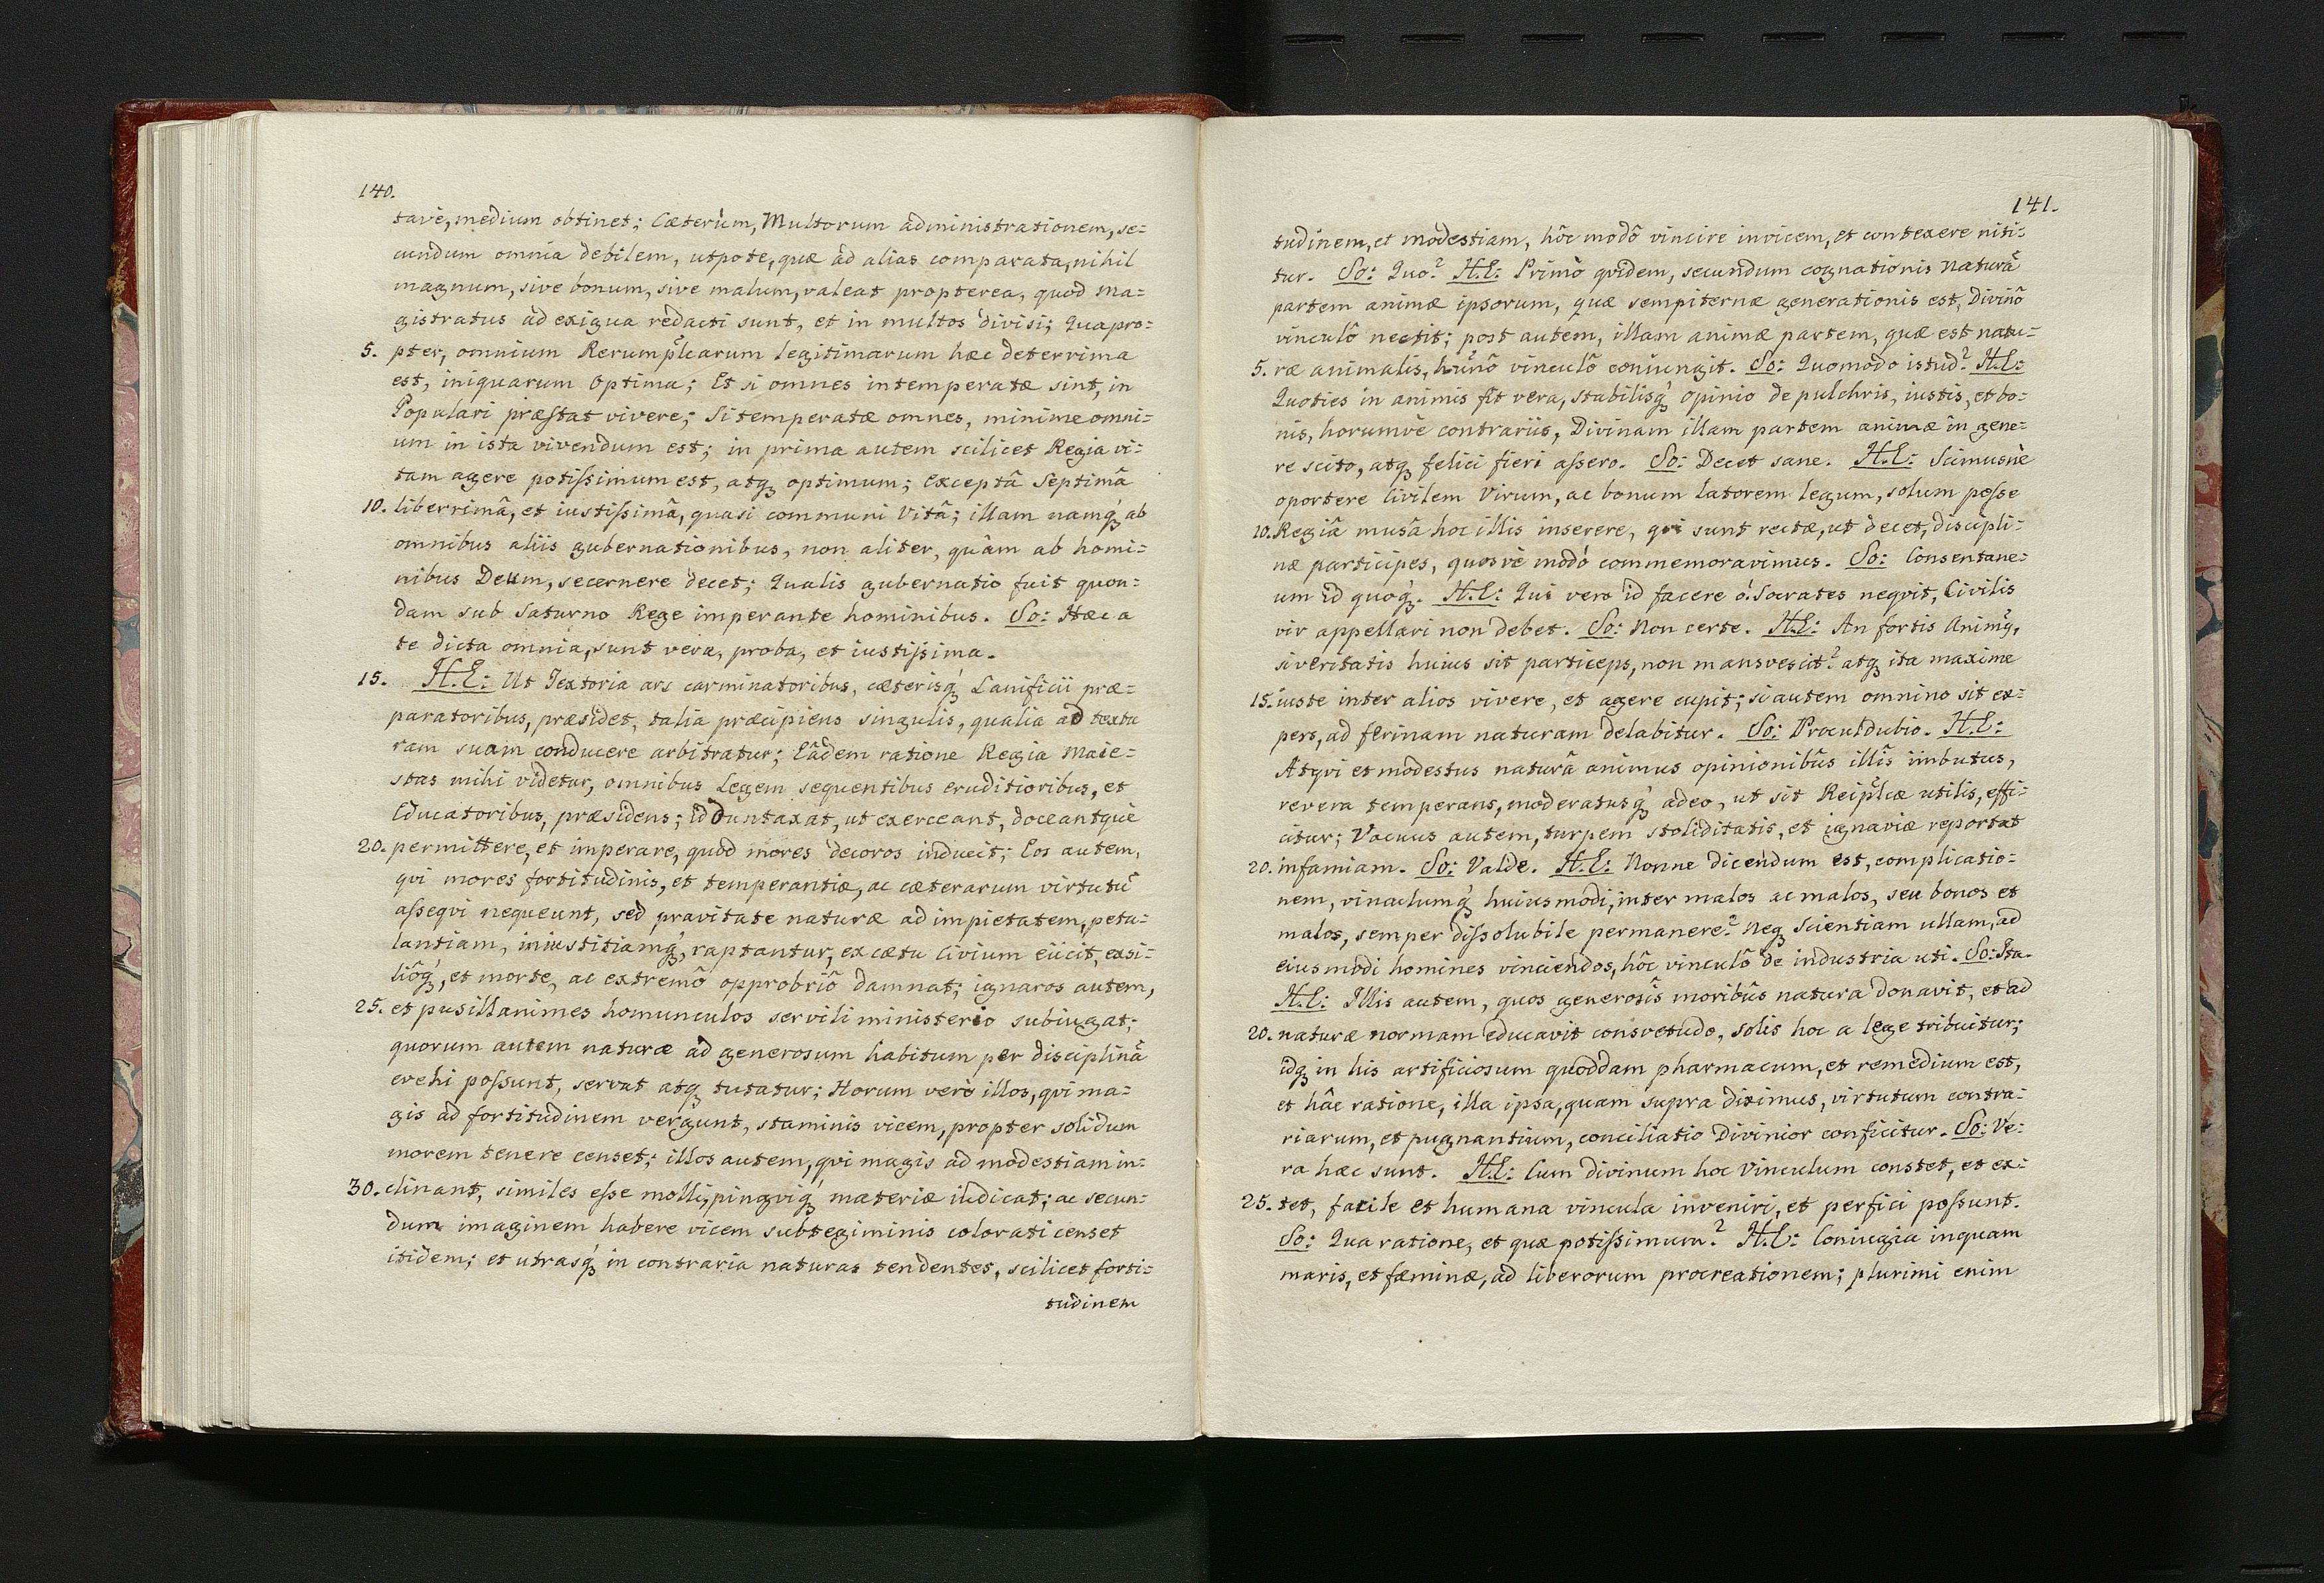 140.
tavè, medium obtinet; Cæterùm, Multorum administrationem, se=
cundum omnia debilem, utpote, quæ ad alias comparata, nihil
magnum, sive bonum, sive malum, valeat propterea, quod ma=
gistratus ad exigua redacti sunt, et in multos divisi; Quapro=
5. pter, omnium Rerumplicarum legitimarum hæc deterrima
est, iniquarum optima; Et si omnes intemperatæ sint, in
Populari præstat vivere; Si temperatæ omnes, minime omni=
um in ista vivendum est; in prima autem scilicet Regia vi=
tam agere potissimum est, atq optimum; exceptâ Septimâ
10. liberrimâ, et iustissimâ, quasi communi vitâ; illam namq́ ab
omnibus aliis gubernationibus, non aliter, quàm ab homi=
nibus Deum, secernere decet; Qualis gubernatio fuit quon=
dam sub Saturno Rege imperante hominibus. So: Hæc a
te dicta omnia, sunt vera, proba, et iustissima.
15. H.E: Ut Textoria ars carminatoribus, cæterisq́ Lanificii præ=
paratoribus, præsidet, talia præcipiens singulis, qualia ad textu
ram suam conducere arbitratur; Eâdem ratione Regia Maie=
stas mihi videtur, omnibus Legem sequentibus eruditioribus, et
Educatoribus, præsidens; id duntaxat, ut exerceant, doceantquè
20. permittere, et imperare, quod mores decoros inducit; Eos autem,
qvi mores fortitudinis, et temperantiæ, ac cæterarum virtutũ
asseqvi nequeunt, sed pravitate naturæ ad impietatem, petu=
lantiam, iniustitiamq́, raptantur, ex cætu Civium eiicit, exsi=
liôq́, et morte, ac extremô opprobriô damnat; ignaros autem,
25. et pusillanimes homunculos servili ministerio subiugat;
quorum autem naturæ ad generosum habitum per disciplinã
evehi possunt, servat atq tutatur; Horum verò illos, qvi ma=
gis ad fortitudinem vergunt, staminis vicem, propter solidum
morem tenere censet; illos autem, qvi magis ad modestiam in=
30. clinant, similes esse molli, pingviq́ materiæ iudicat; ac secun=
dum imaginem habere vicem subtegiminis colorati censet
itidem; et utrasq́ in contraria naturas tendentes, scilicet forti=
tudinem
141.
tudinem, et modestiam, hôc modô vincire invicem, et contexere niti=
tur. So: Quo? H.E: Primò qvidem, secundum cognationis naturã
partem animæ ipsorum, quæ sempiternæ generationis est, Divinô
vinculô nectit; post autem, illam animæ partem, quæ est natu=
5. ræ animalis, hũnô vinculô coniungit. So: Quomodo istud? H.E:
Quoties in animis fit vera, stabilisq́ opinio de pulchris, iustis, et bo=
nis, horumvè contrariis, Divinam illam partem animæ in gene=
re scito, atq felici fieri assero. So: Decet sane. H.E: Scimusnè
oportere Civilem Virum, ac bonum latorem legum, solum posse
10. Regiâ musâ hoc illis inserere, qvi sunt rectæ, ut decet, discipli=
næ participes, quosvè modó commemoravimus. So: Consentane=
um id quoq́. H.E: Qui vero id facere ó! Socrates neqvit, Civilis
vir appellari non debet. So: Non certe. H.E: An fortis Animq,
si veritatis huius sit particeps, non mansvescit? atq ita maxime
15. iuste inter alios vivere, et agere cupit; si autem omnino sit ex=
pers, ad ferinam naturam delabitur. So: Proculdubio. H.E:
Atqvi et modestus naturâ animus opinionibũs illîs imbutus,
revera temperans, moderatusq́ adeo, ut sit Reiplcæ utilis, effi=
citur; Vacuus autem, turpem stoliditatis, et ignaviæ reportat
20. infamiam. So: Valde. H.E: Nonne dicendum est, complicatio=
nem, vinculumq́ huiusmodi, inter malos ac malos, seu bonos et
malos, semper dissolubile permanere? neq Scientiam ullam, ad
eiusmodi homines vinciendos, hôc vinculô de industria uti. So: Ita.
H.E: Illis autem, quos generosîs moribûs natura donavit, et ad
20. naturæ normam educavit consvetudo, solis hoc a lege tribuitur;
idq in his artificiosum quoddam pharmacum, et remedium est,
et hâc ratione, illa ipsa, quam supra diximus, virtutum contra=
riarum, et pugnantium, conciliatio Divinior conficitur. So: Ve=
ra hæc sunt. H.E: Cum divinum hoc Vinculum constet, et ex=
25. tet, facile et humana vincula inveniri, et perfici possunt.
So: Qua ratione, et quæ potissimum? H.E: Coniugia inquam
maris, et fæminæ, ad liberorum procreationem; plurimi enim